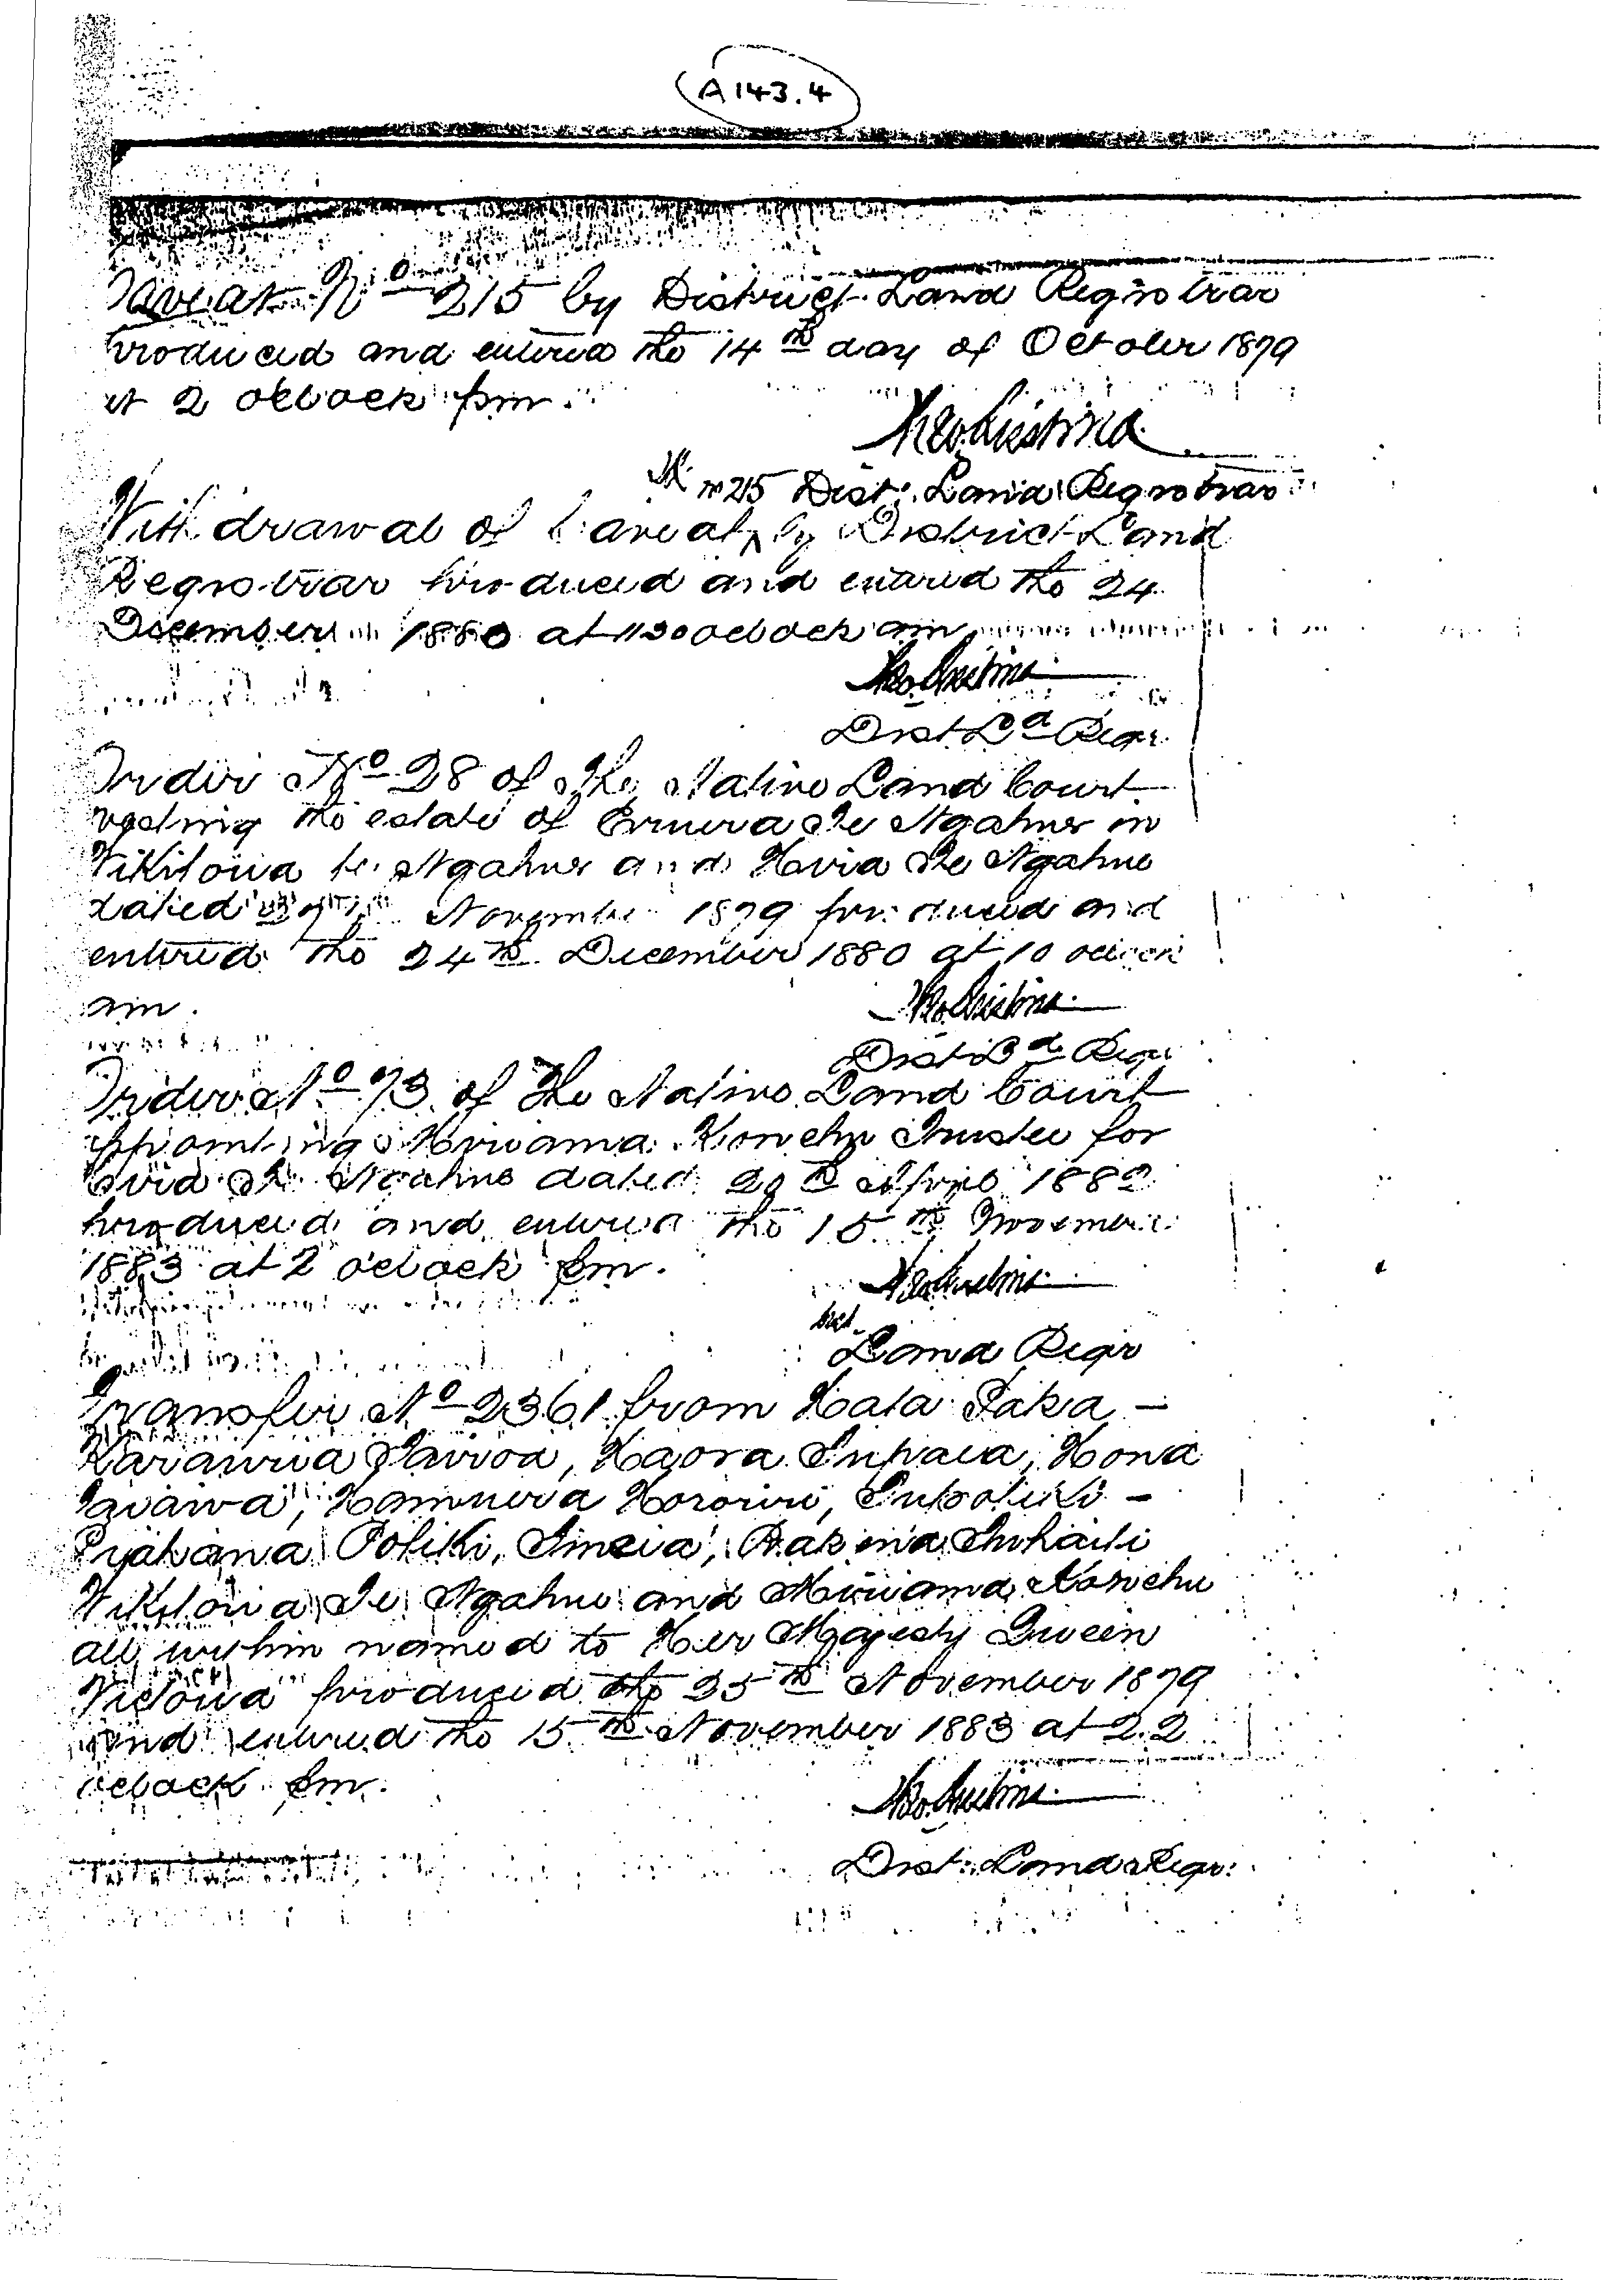 A143.4
Caveat No 215 by District Land Registrar
produced and entered the 14th day of October 1879
at 2 oclock pm.
No 215 Dist. Land Registrar
Withdrawal of Caveat by District Land
Registrar produced and entered the 24
December 1880 at 11 30 oclock am
Dist Ld Regr
Order No 28 of the Native Land Court
vesting the estate of Te Ngahue in
Wikitoria te Ngahue and Te Ngahue
dated November 1879 produced and
entered the 24th December 1880 at 10 oclock
am.
Dist Ld Regr
Order No 73 of the Native Land Court
appointing Miriama Konehu Trustee for
Te Ngahue dated 20th April 1882
produced and entered the 15th November
1883 at 2 oclock pm.
Dist
Land Regr
Transfer No 2361 from Hata Taka –
Karauria Hona
–
Potiki,
Wikitoria Te Ngahue and Miriama Konehu
all within named to Her Majesty Queen
Victoria produced the 25th November 1879
and entered the 15th November 1883 at 2.2
oclock pm.
Dist. Land Regr.